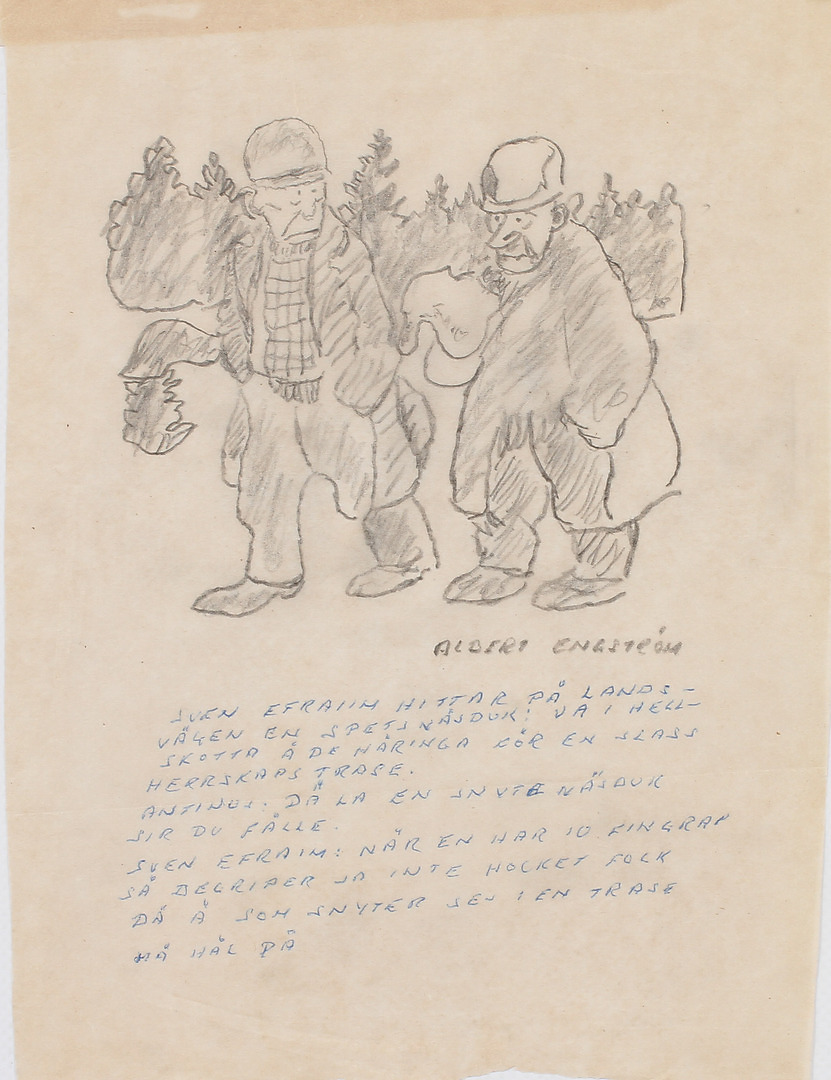 ALBERT ENGSTRÖM
SVEN EFRAIM HITTAR PÅ LANDS-
VÄGEN EN SPETSNÄSDUK: VA I HELL-
SKOTTA Ä DE HÄRINGA FÖR EN SLASS
HERRSKAPSTRASE.
ANTINOS: DÄ LA EN SNYTENÄSDUK
SIR DU FÅLLE.
SVEN EFRAIM: NÄR EN HAR 10 FINGRAR
SÅ BEGRIPER JA INTE HOCKET FOLK
DÄ Ä SOM SNYTER SEJ I EN TRASE
MÄ HÅL PÅ